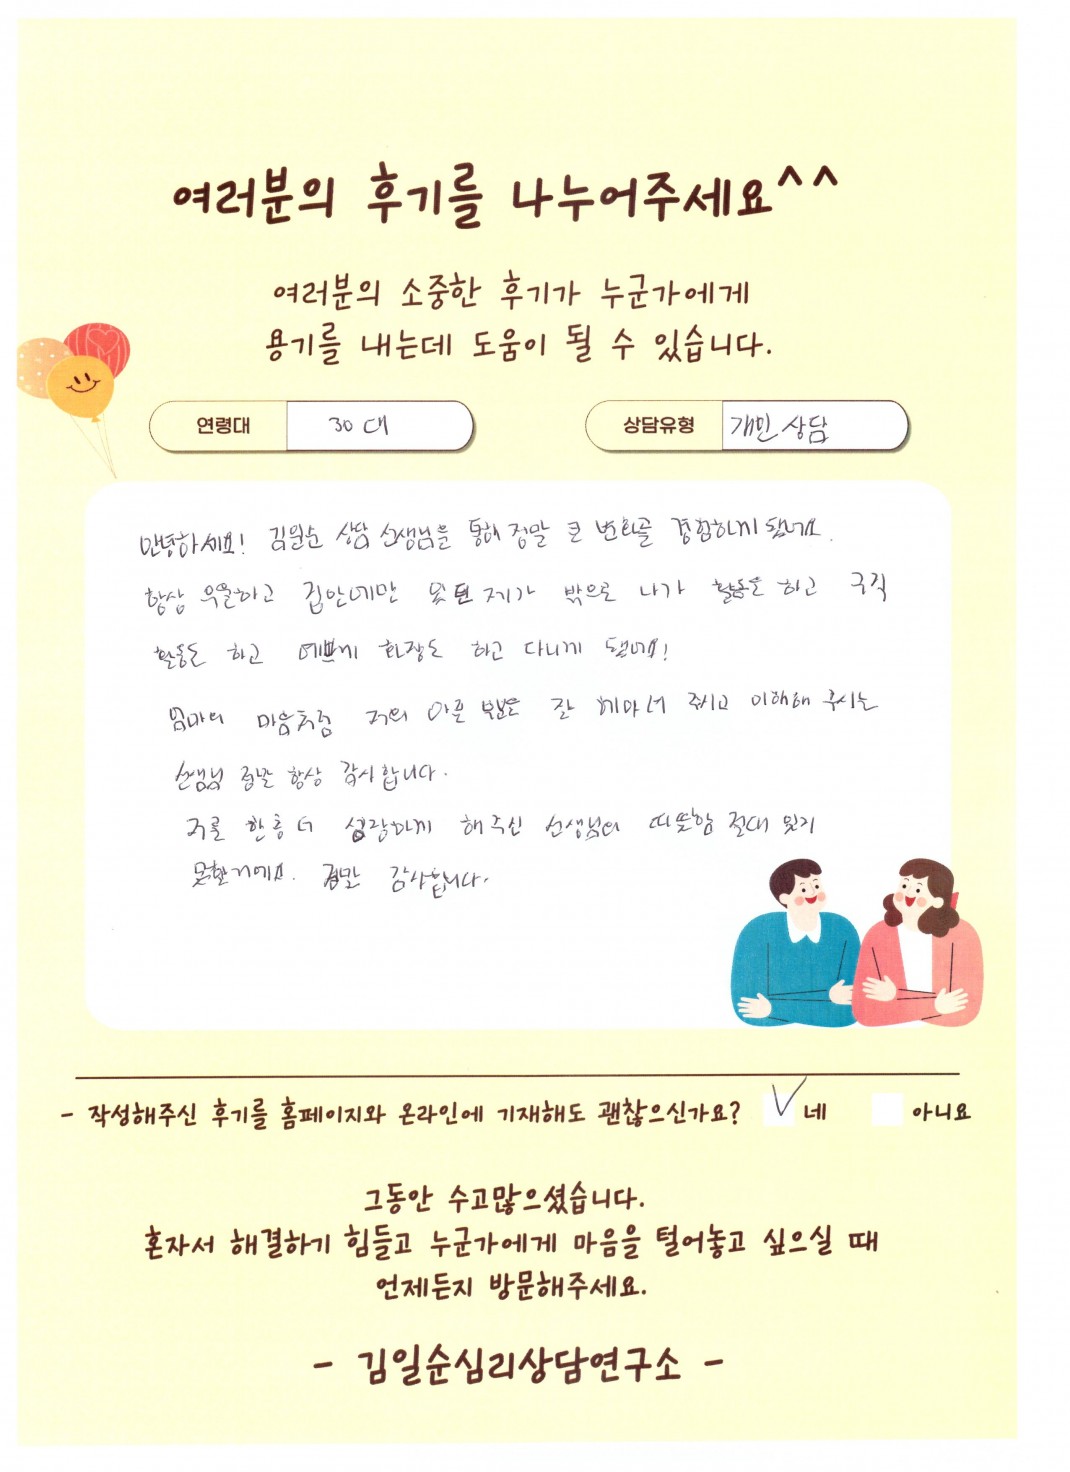 여러분의 후기를 나누어주세요^^
여러분의 소중한 후기가 누군가에게
용기를 내는데 도움이 될 수 있습니다.
연령대 30대 상담유형 개인상담
안녕하세요! 김일순 상담 선생님을 통해 정말 큰 변화를 경험하게 됐네요.
항상 우울하고 집안에만 제가 밖으로 나가 활동을 하고 구직
활동도 하고 예쁘게 화장도 하고 다니게 됐네요!
엄마의 마음처럼 저의 아픈 부분을 잘 헤아려 주시고 이해해 주시는
선생님 정말 항상 감사합니다.
저를 한층 더 성장하게 해주신 선생님의 따뜻함 절대 잊지
못할거예요. 정말 감사합니다.
- 작성해주신 후기를 홈페이지와 온라인에 기재해도 괜찮으신가요? 네 아니요
그동안 수고많으셨습니다.
혼자서 해결하기 힘들고 누군가에게 마음을 털어놓고 싶으실 때
언제든지 방문해주세요.
- 김일순심리상담연구소 -